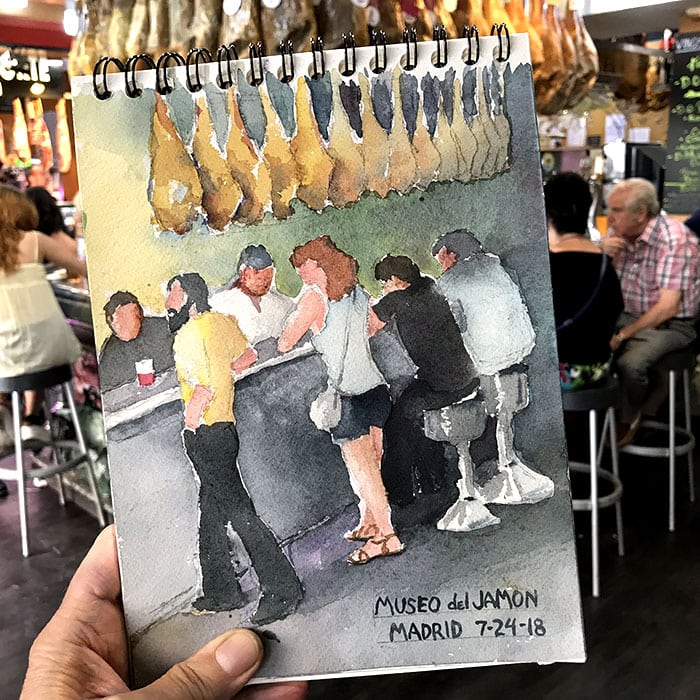 MUSEO del JAMON
MADRID 7-24-18